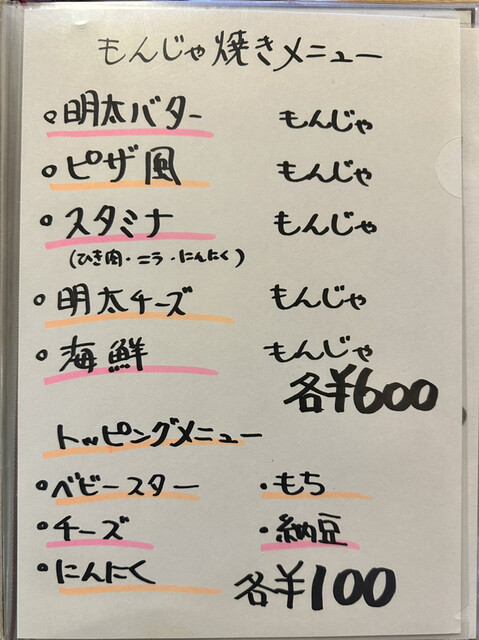 もんじゃ焼きメニュー
。明太バター もんじゃ
。ピザ風 もんじゃ
。スタミナ もんじゃ
(ひき肉・ニラ・にんにく)
。明太チーズ もんじゃ
。海鮮 もんじゃ
各¥600
トッピングメニュー
・ベビースター ・もち
・チーズ ・納豆
・にんにく
各¥100